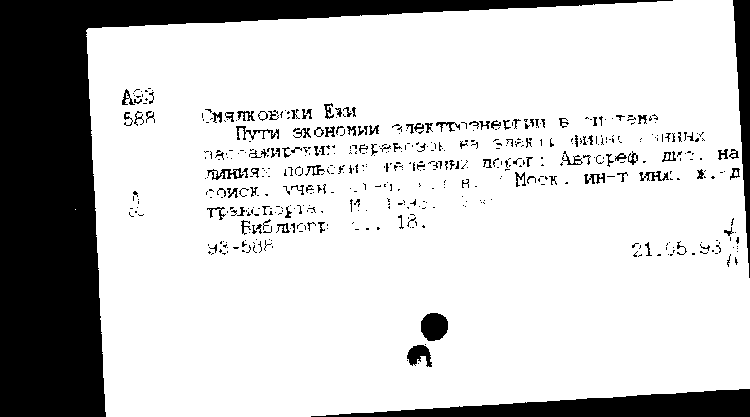 А93
588
Смялковски Ежи
Пути экономии электроэнергии в системе
пассажирских перевозок на электрифицированных
линиях польских железных дорог: Автореф. дис. на
соиск. учен. Моск. ин-т инж. ж.-д
транспорта. М.
Библиогр. 18.
93-588
21.05.93